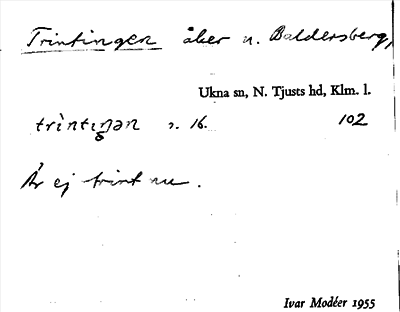 Trintingen åker u. Baldersberg,
Ukna sn, N. Tjusts hd, Klm. l.
trìntıŋən s. 16. 102
Är ej trint nu.
Ivar Modéer 1955